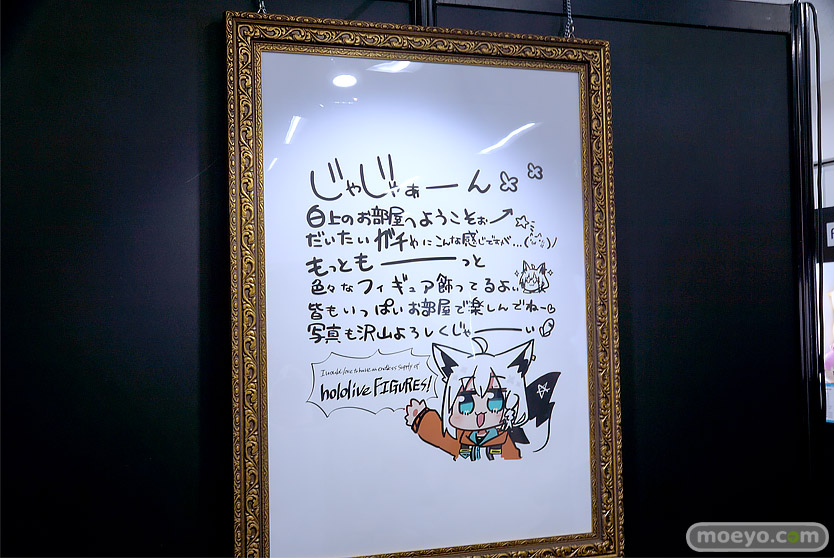 じゃじゃぁーん
白上のお部屋へようこそぉー
だいたいガチャにこんな感じですべ...
もっともーーっと
色々なフィギュア飾ってるよ..
皆もいっぱいお部屋で楽しんでねー
写真も沢山よろしくじゃーーい
I would love to have an endless supply of
hololive FIGURES!
moeyo.com